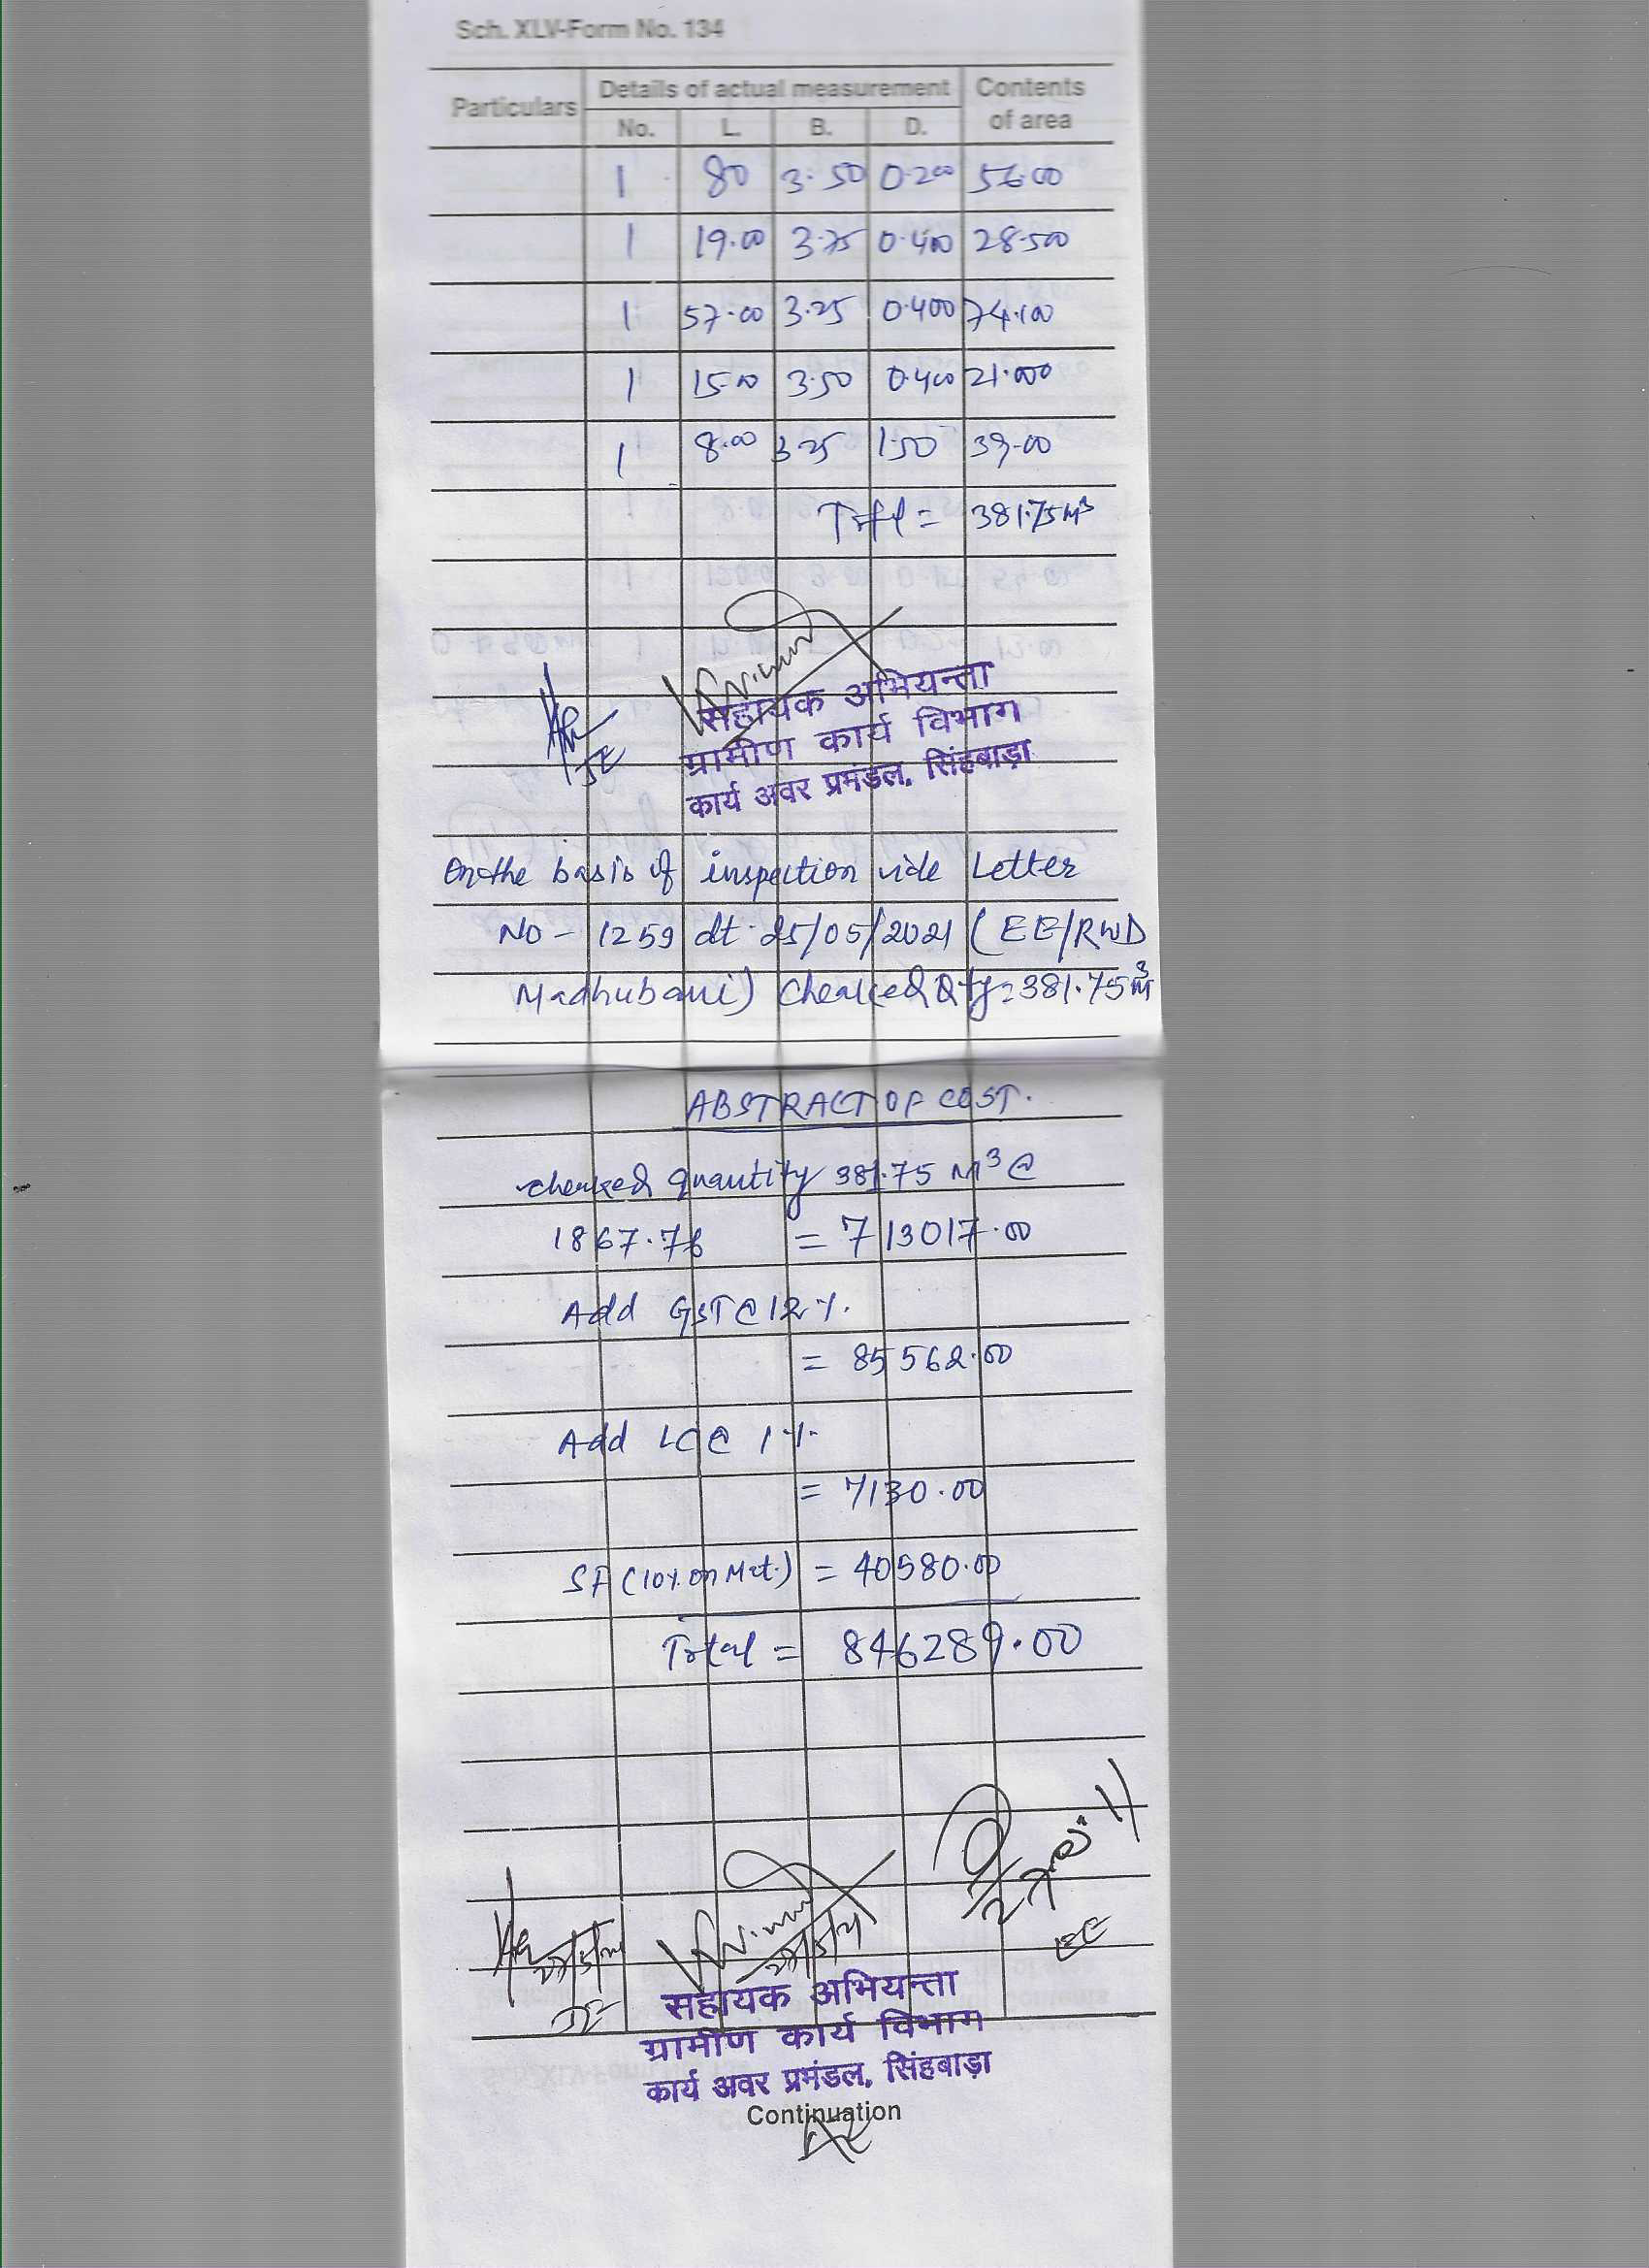 Sch. XLV-Form No. 134
Particulars Details of actual measurement Contents of area
No. L. B. D.
1 80 3.50 0.200 56.00
1 19.00 3.75 0.400 28.500
1 57.00 3.25 0.400 74.100
1 15.00 3.50 0.400 21.000
1 8.00 3.25 1.50 39.00
Total = 381.75 M³
JE
सहायक अभियन्ता
ग्रामीण कार्य विभाग
कार्य अवर प्रमंडल, सिंहबाड़ा
On the basis of inspection vide Letter
No - 1259 dt. 25/05/2021 (EE/RWD
Madhubani) Cheaked Qty = 381.75 M³
ABSTRACT OF COST.
cheaked quantity 381.75 M³ @
1867.76 = 713017.00
Add GST @ 12 %.
= 85562.00
Add LC @ 1 %
= 7130.00
SF (10%. on Mat.) = 40580.00
Total = 846289.00
JE
EE
सहायक अभियन्ता
ग्रामीण कार्य विभाग
कार्य अवर प्रमंडल, सिंहबाड़ा
Continuation